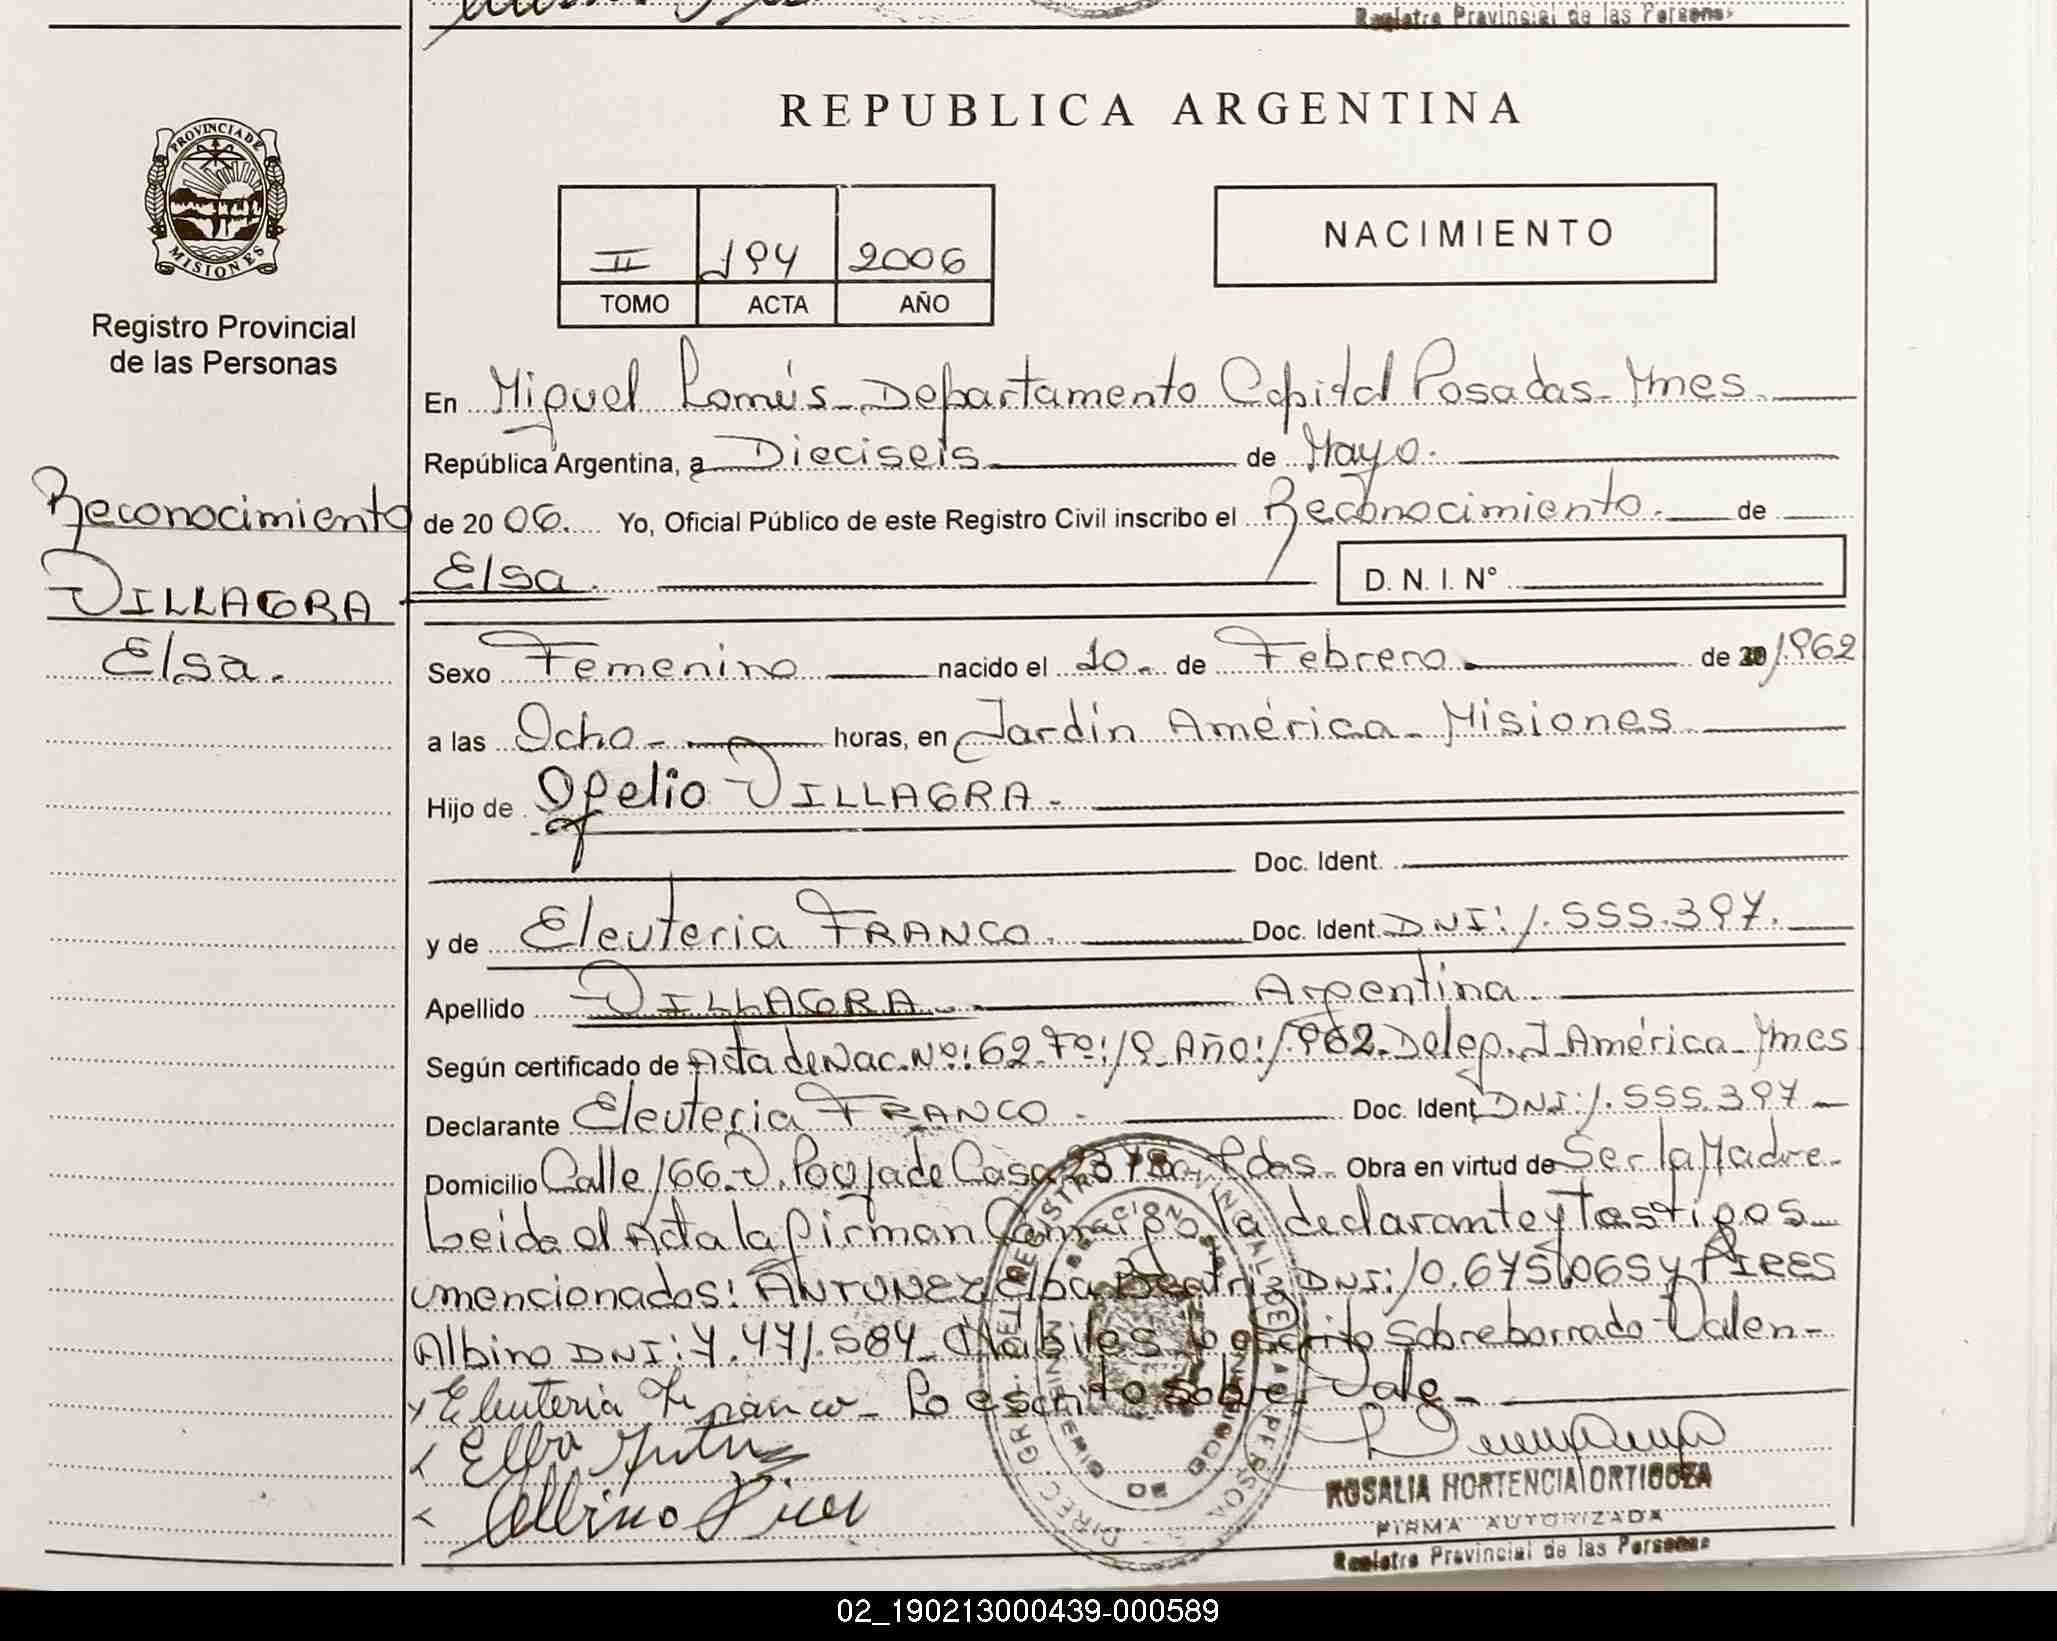 Registro Provincial de las Personas
REPUBLICA ARGENTINA
PROVINCIA DE
MISIONES
Registro Provincial
de las Personas
II 194 2006
TOMO ACTA AÑO
NACIMIENTO
Reconocimiento
VILLAGRA
Elsa.
En Miguel Lomús - Departamento Capital Posadas - Mnes.
República Argentina, a Dieciseis de Mayo.
de 20 06. Yo, Oficial Público de este Registro Civil inscribo el Reconocimiento. de
Elsa. D. N. I. N°
Sexo Femenino nacido el 10. de Febrero de 20 1962
a las Ocho - horas, en Jardín América - Misiones
Hijo de Ofelio VILLAGRA -
Doc. Ident.
y de Eleuteria FRANCO. Doc. Ident. DNI: 1.555.397.
Apellido VILLAGRA - Argentina
Según certificado de Acta de Nac. Nº: 62 Fº: 19 Año: 1962. Deleg. J. América - Mnes
Declarante Eleuteria FRANCO - Doc. Ident DNI: 1.555.397
Domicilio Calle 166 - V. Poujade Casa - Pdas - Obra en virtud de Ser la Madre -
Leida el Acta la firman Conmigo la declarante y Testigos -
mencionados: ANTUNEZ Elba Beatriz DNI: 10.675.065 y PIRES
Albino DNI: 7.471.584 - Habiles - Lo escrito sobreborrado Valen -
x Eleuteria Franco - Lo escrito Sobre Vale -
x Elba
x Albino Pires
ROSALIA HORTENCIA ORTIGOZA
FIRMA AUTORIZADA
Registro Provincial de las Personas
02_190213000439-000589